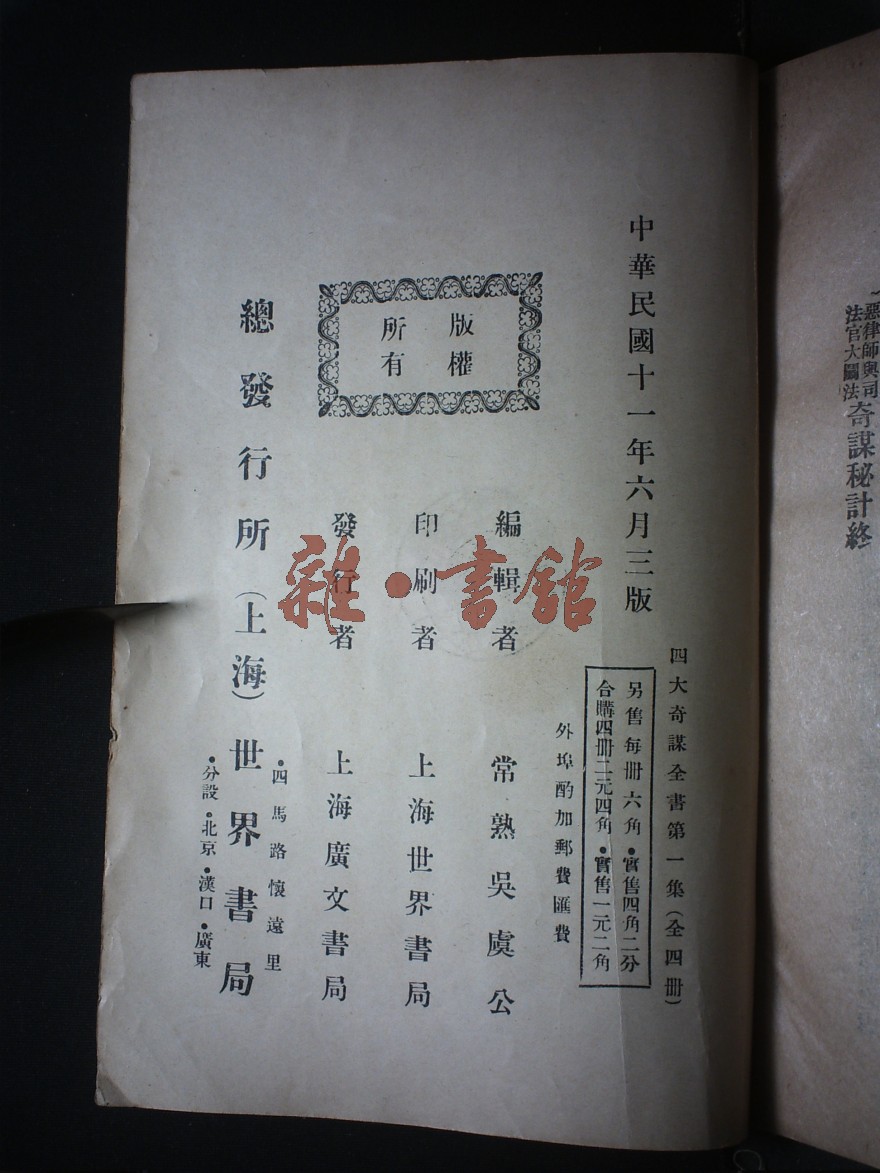 惡律師與司
法官大鬭法
奇謀秘計終
中華民國十一年六月三版
四大奇謀全書第一集(全四冊)
另售每冊六角•實售四角二分
合購四冊二元四角•實售一元二角
外埠酌加郵費匯費
版權
所有
編輯者 常熟吳虞公
印刷者 上海世界書局
發行者 上海廣文書局
總發行所(上海)世界書局
•四馬路懷遠里
•分設•北京•漢口•廣東
雜•書館